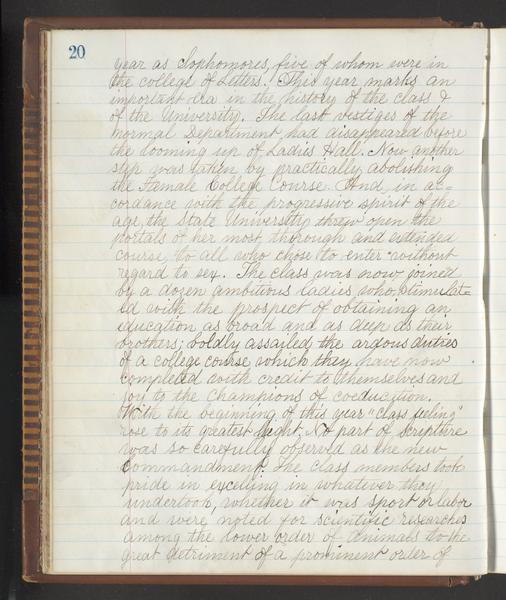 20
year as Sophomores, five of whom were in
the college of Letters. This year marks an
important era in the history of the class &
of the University. The last vestiges of the
normal Department had disappeared before
the looming up of Ladies Hall. Now another
step was taken by practically abolishing
the Female College Course. And, in ac=
cordance with the progressive spirit of the
age, the State University threw open the
portals of her most thorough and extended
course to all who chose to enter without
regard to sex. The class was now joined
by a dozen ambitious ladies who, stimulat=
ed with the prospect of obtaining an
education as broad and as deep as their
brothers; boldly assailed the ardous duties
of a college course which they have now
completed with credit to themselves and
joy to the champions of coeducation.
With the beginning of this year "class feeling"
rose to its greatest hight. No part of scripture
was so carefully observed as the new
commandment. The class members took
pride in excelling in whatever they
undertook, whether it was sport or labor
and were noted for scientific researches
among the lower order of animals to the
great detriment of a prominent order of